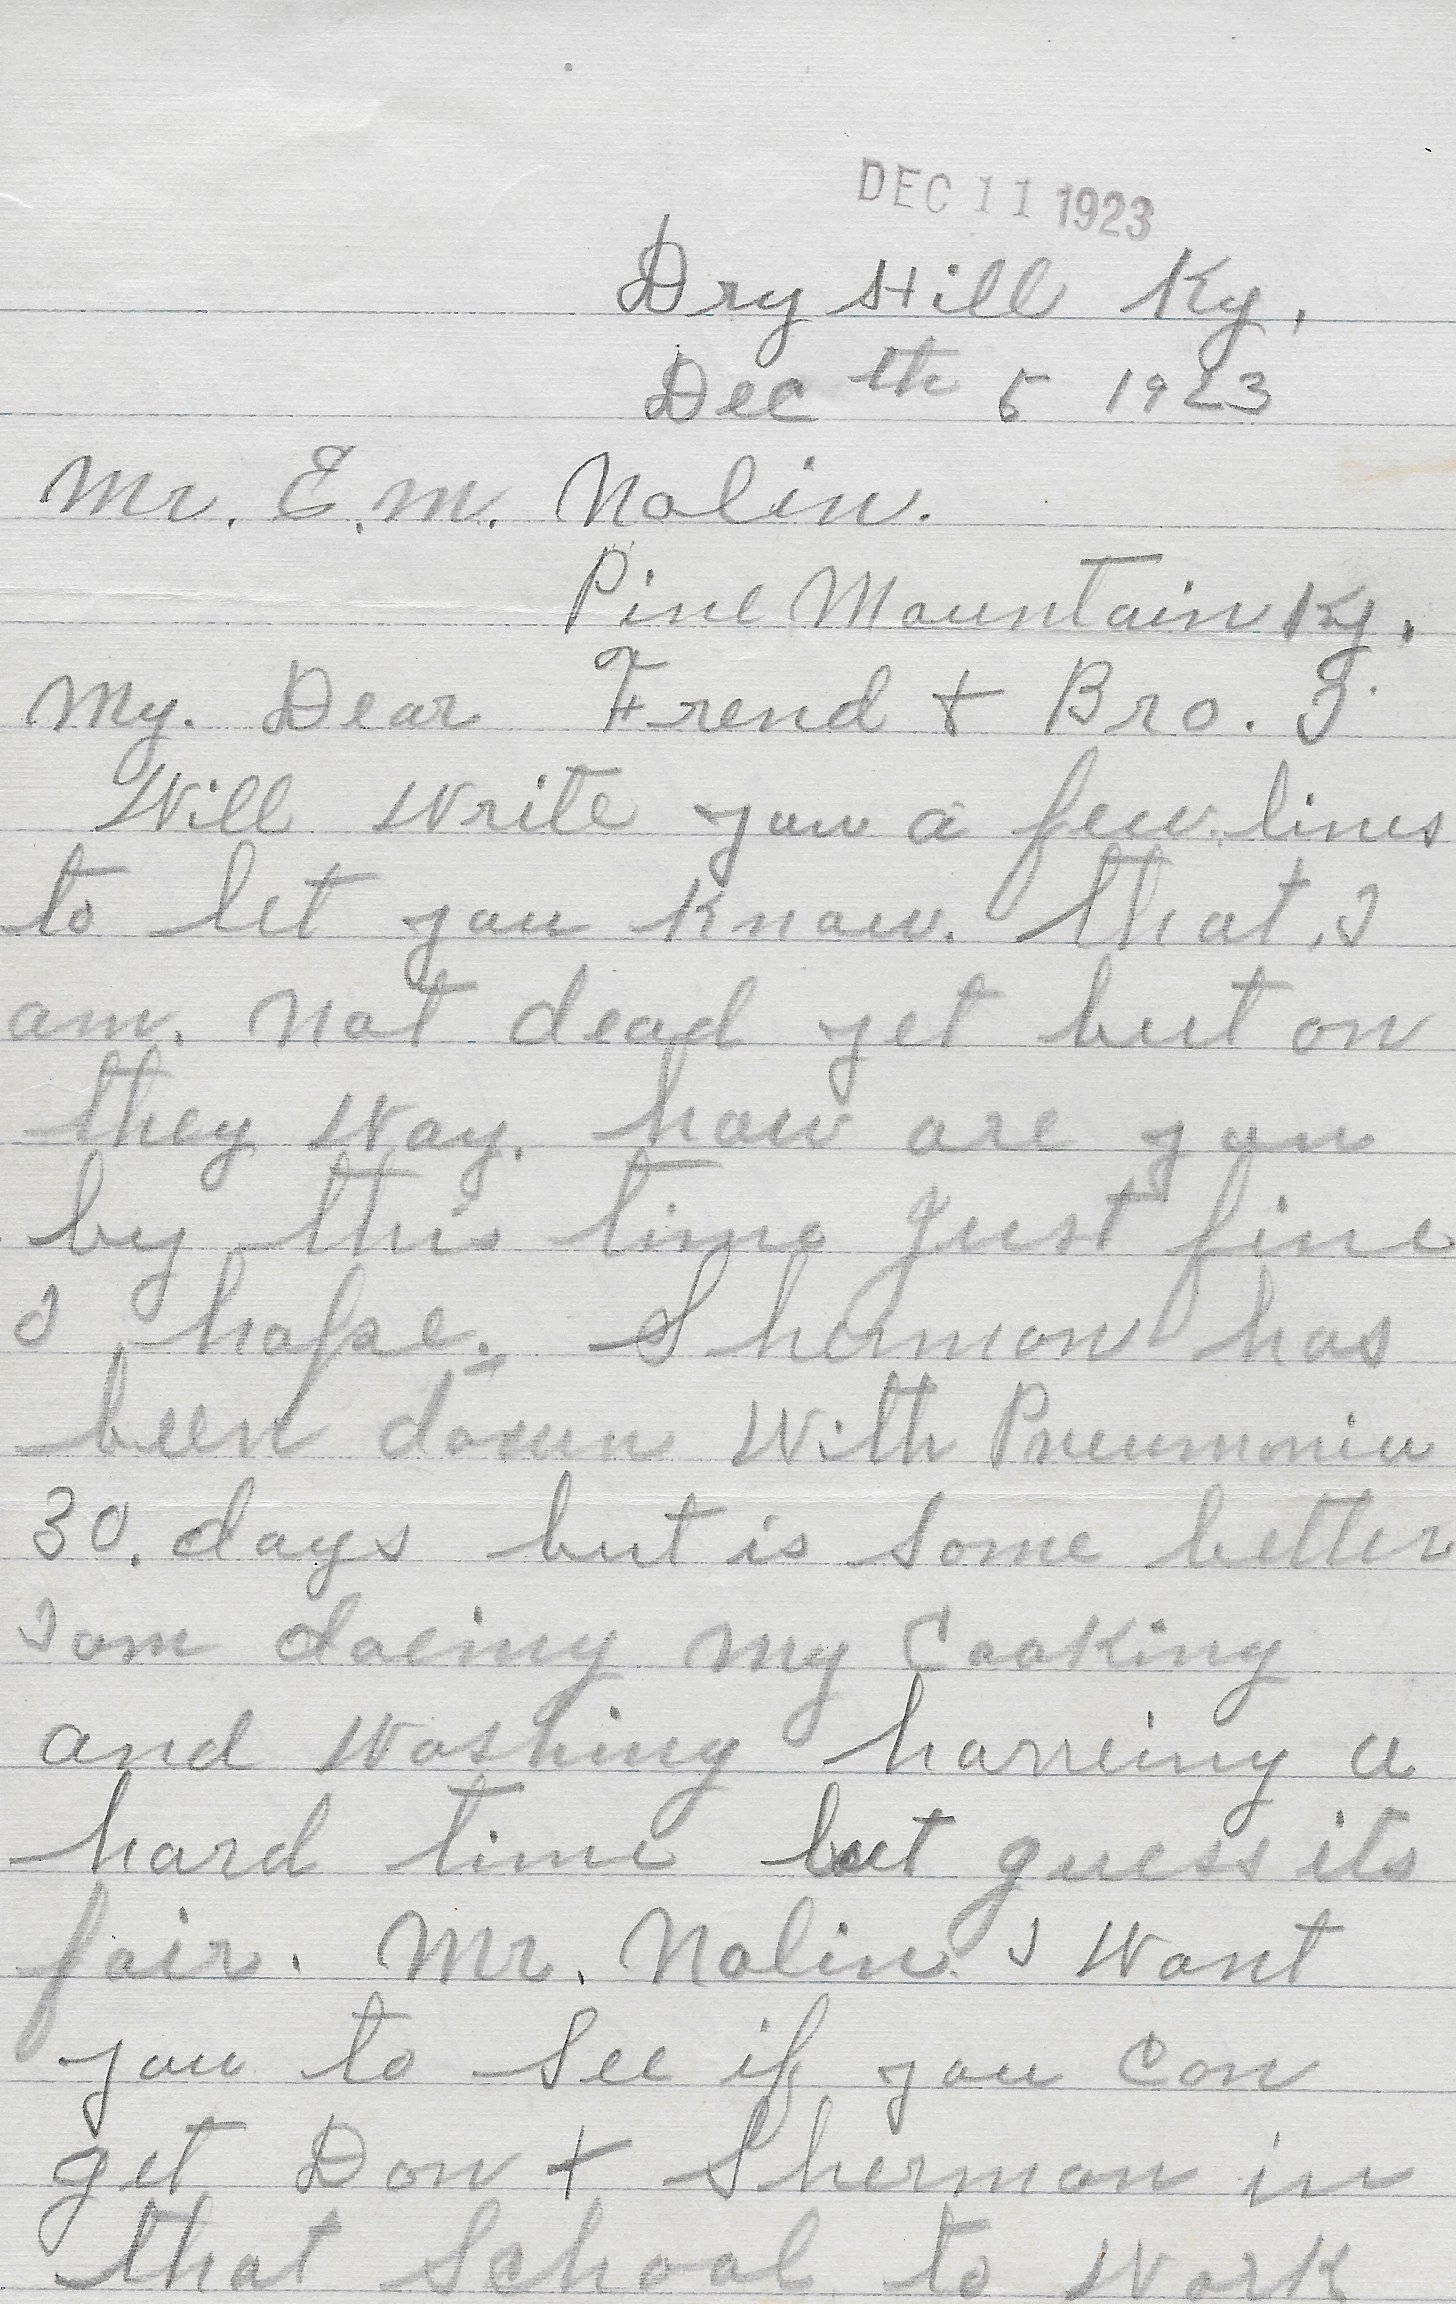 DEC 11 1923
Dry Hill Ky.
Dec th 5 1923
Mr. E.M. Nolin.
Pine Mountain Ky.
My. Dear Frend + Bro. I
Will Write you a few lines
to let you Know. that, I
am. not dead yet but on
they Way. how are you
by this time Just fine
I hope. Shermon has
been down With Pneumonia
30. days but is Some better
I am doeing my Cooking
and Washing harreing a
hard time but guess its
fair. Mr. Nolin. I Want
you to See if you Can
get Don + Sherman in
that School to Work